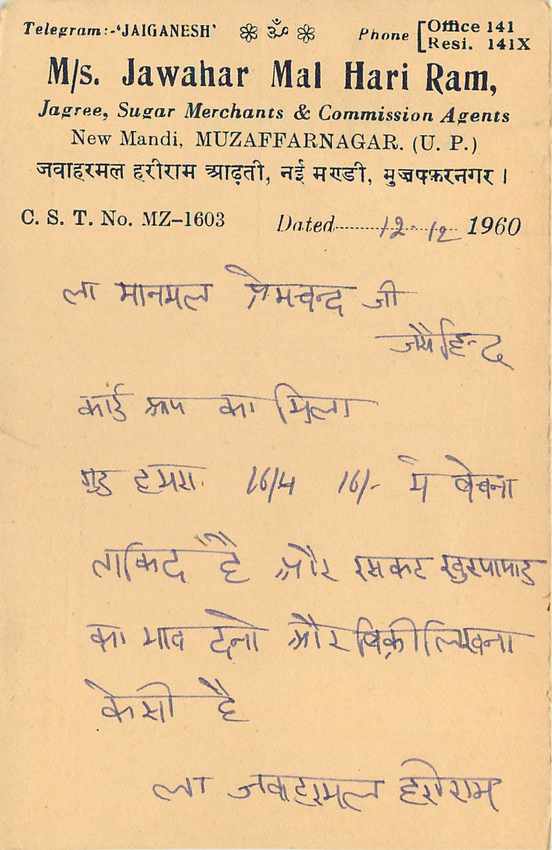 Telegram:-'JAIGANESH' ॐ Phone [Office 141
Resi. 141X
M/s. Jawahar Mal Hari Ram,
Jagree, Sugar Merchants & Commission Agents
New Mandi, MUZAFFARNAGAR. (U. P.)
जवाहरमल हरीराम आढ़ती, नई मण्डी, मुज़फ़्फ़रनगर ।
C. S. T. No. MZ-1603 Dated 12-12 1960
ला मानमल प्रेमचन्द जी
जयहिन्द
कार्ड आप का मिला
गुड हमरा 16/4 16/- मे बेचना
ताकिद है और रसकट खुरपापाड
का भाव देनो और बिक्री लिखना
केसी है
ला जवाहरमल हरीराम